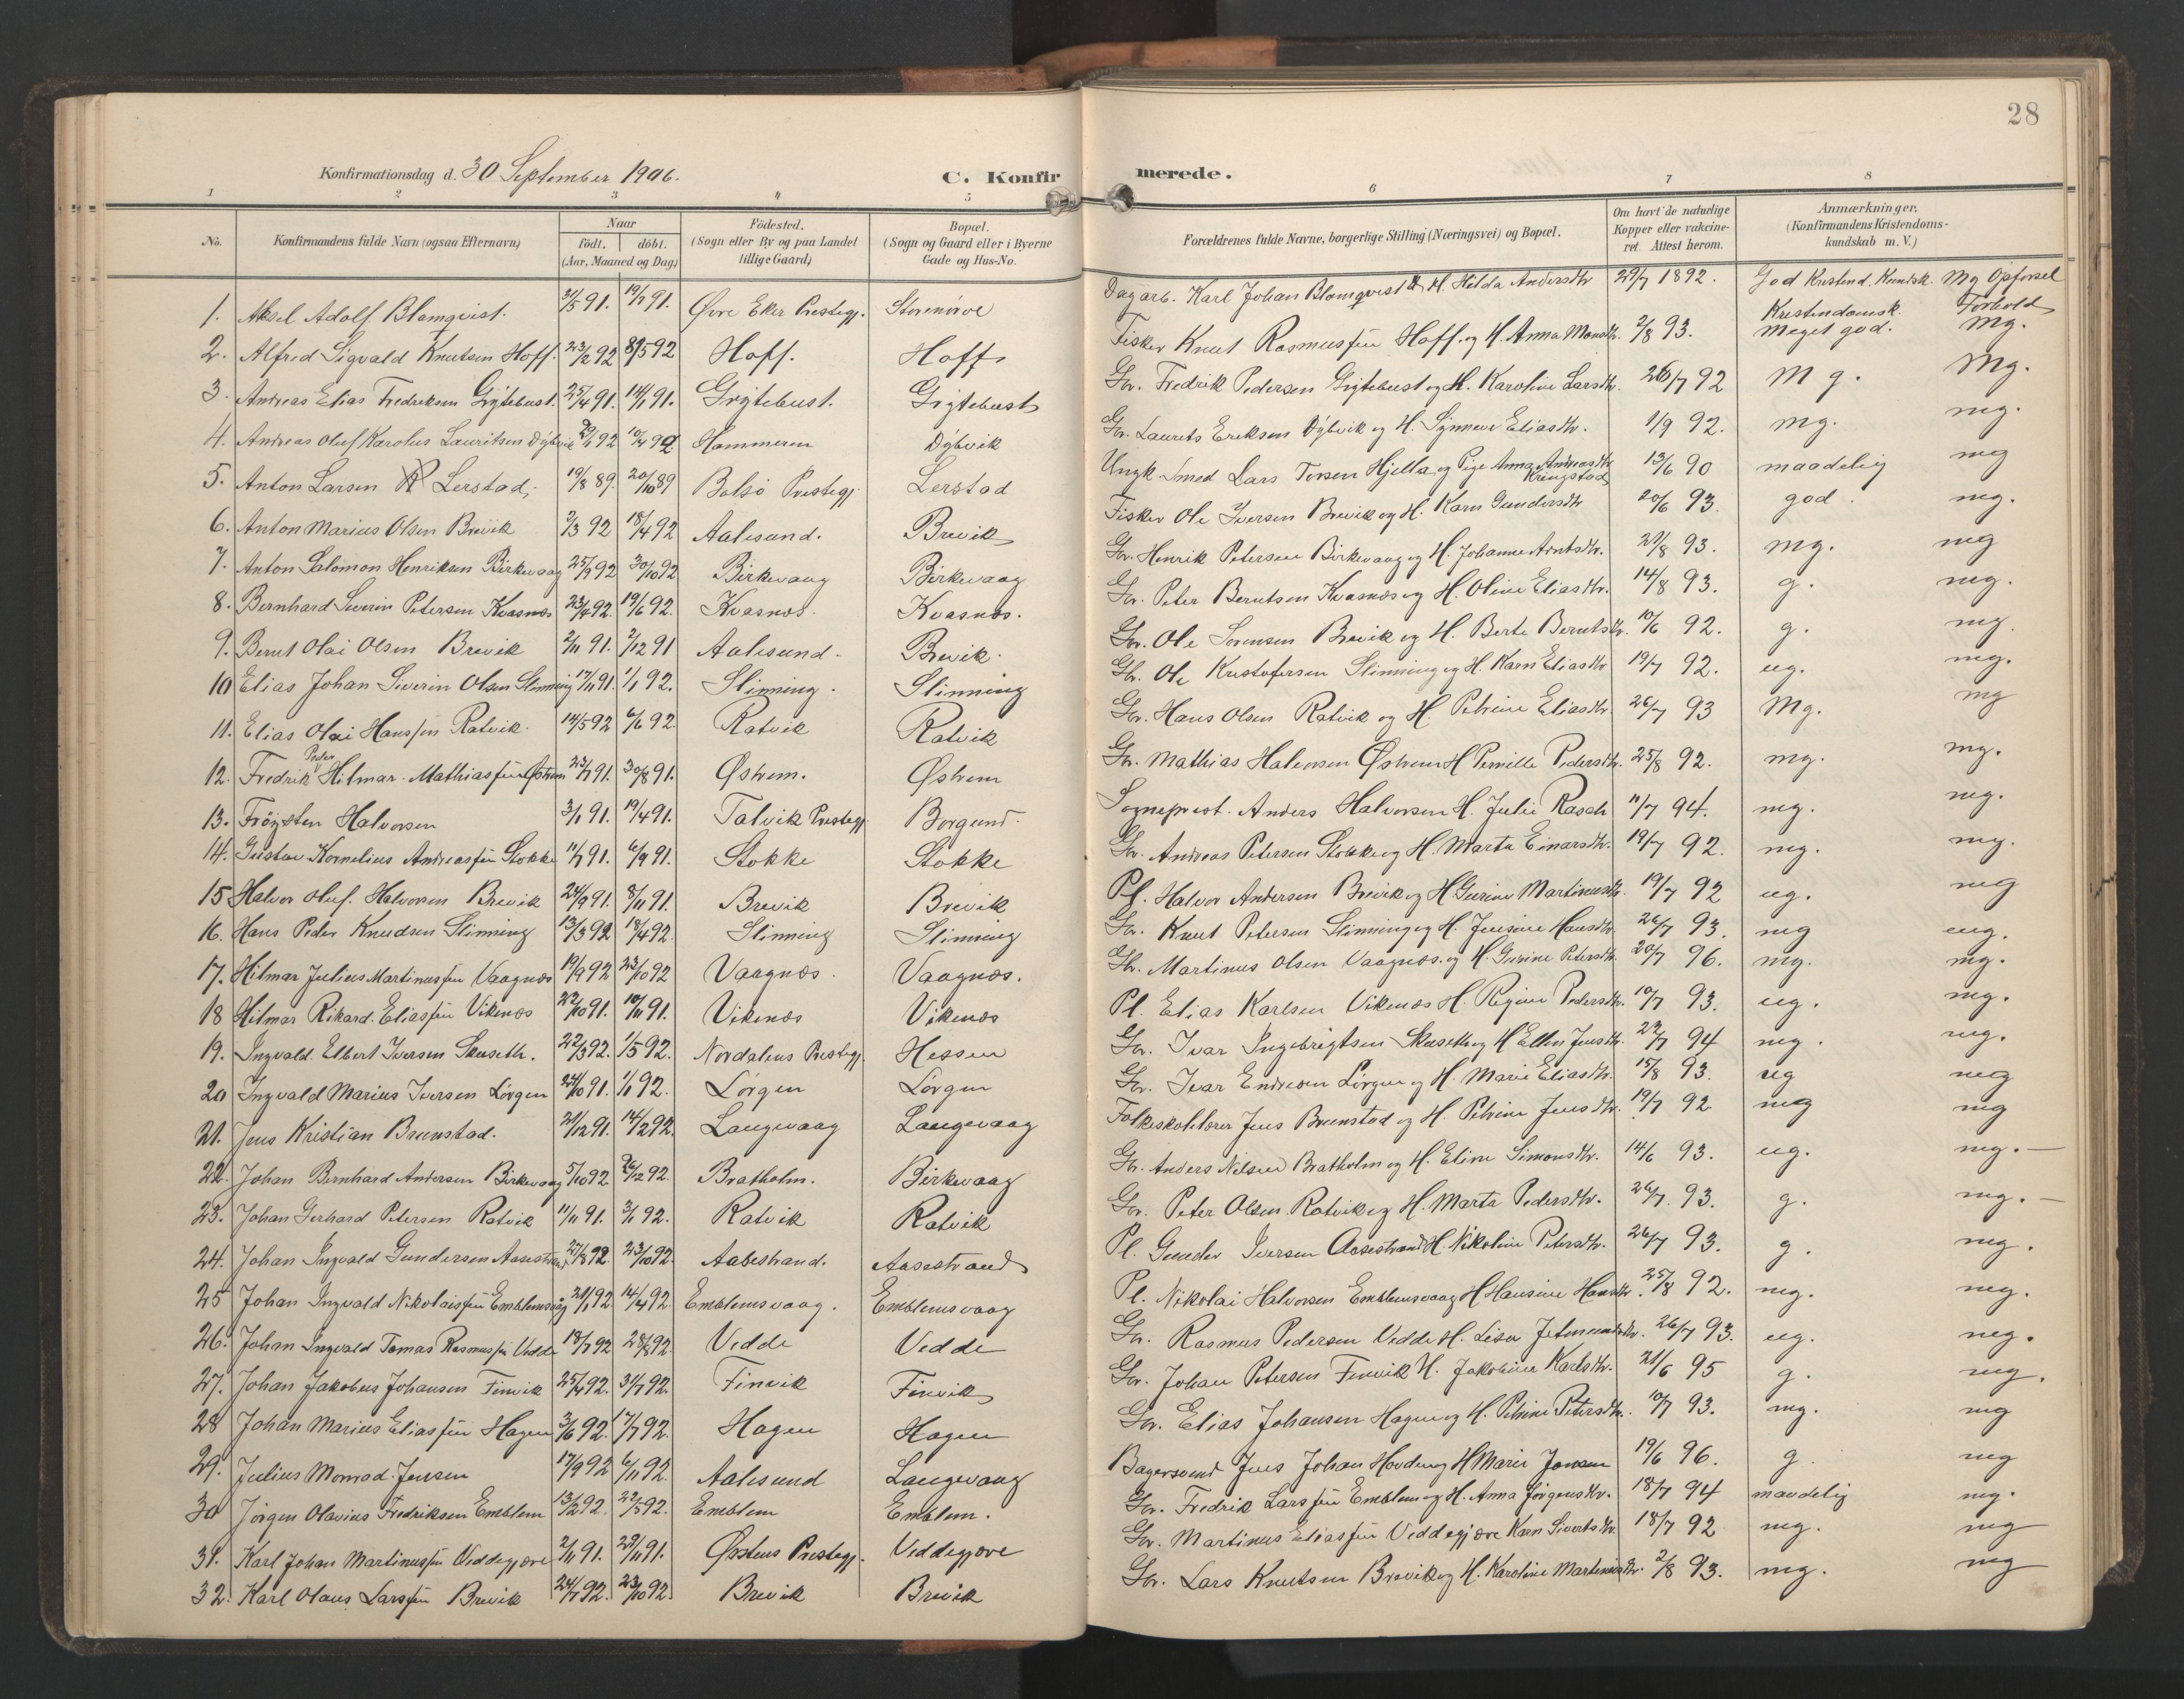 28
Konfirmationsdag d. 30 September 1906.
C. Konfirmerede.
1 2 3 4 5 6 7 8
No. Konfirmandens fulde Navn (ogsaa Efternavn) Naar födt. döbt. (Aar, Maaned og Dag) Födested. (Sogn eller By og paa Landet tillige Gaard) Bopæl. (Sogn og Gaard eller i Byerne Gade og Hus-No. Forældrenes fulde Navne, borgerlige Stilling (Næringsvei) og Bopæl. Om havt de naturlige Kopper eller vakcineret. Attest herom. Anmærkninger. (Konfirmandens Kristendomskundskab m. V.)
1. Aksel Adolf Blomqvist. 31/5 91. 19/7 91. Øvre Eker Prestegj. Storenörve Dagarb. Karl Johan Blomqvist & H. Hilda Andersdtr 29/7 1892. God Kristend. Kundsk. Mg Opförsel
2. Alfred Sigvald Knutsen Hoff. 23/2 92 8/5 92 Hoff. Hoff Fisker Knut Rasmusssen Hoff. og H. Anna Monsdtr. 2/8 93. Kristendomsk. meget god. Forhold mg.
3. Andreas Elias Fredriksen Grytebust. 25/4 91. 14/1 91. Grytebust. Grytebust Gbr. Fredrik Pedersen Grytebust og H. Karoline Larsdtr. 26/7 92 Mg. Mg.
4. Andreas Oluf Karolus Lauritsen Dybvik 29/1 92 10/4 92 Hammeren Dybvik Gbr. Laurits Eriksen Dybvik og H. Synneve Eliasdtr. 1/9 92. mg. mg.
5. Anton Larsen Lerstad. 19/8 89. 20/10 89 Bolsö Prestegj. Lerstad Ungk. Smed Lars Torsen Hjella og Pige Anna Andreasdtr Kringstad 13/6 90 maadelig mg
6. Anton Marius Olsen Brevik 2/3 92 18/4 92 Aalesund. Brevik Fisker Ole Iversen Brevik og H. Karn Gundersdtr 20/6 93. god. mg.
7. Anton Salomon Henriksen Birkevaag 25/9 92 30/10 92 Birkevaag Birkevaag Gbr. Henrik Petersen Birkevaag og H. Johanne Arntsdtr. 21/8 93. mg. mg
8. Bernhard Severin Petersen Kvasnes 23/4 92. 19/6 92. Kvasnes. Kvasnes. Gbr. Peter Berntsen Kvasnes og H. Oline Eliasdtr. 14/8 93. g. mg.
9. Bernt Olai Olsen Brevik 2/11 91. 2/12 91 Aalesund. Brevik. Gbr. Ole Sorensen Brevik og H. Berte Berntsdtr. 10/6 92. g. mg.
10 Elias Johan Severin Olsen Slinning 17/11 91. 1/1 92. Slinning. Slinning Gbr. Ole Kristofersen Slinning og H. Karn Eliasdtr 19/7 92. ug. mg.
11. Elias Olai Hanssen Ratvik. 14/5 92 6/6 92. Ratvik Ratvik Gbr. Hans Olsen Ratvik og H. Petrine Eliasdtr. 26/7 93 Mg. mg
12. Fredrik Peder Hilmar Mathiassen Østrem 23/7 91. 30/8 91. Østrem. Østrem Gbr. Mathias Halvorsen Østrem H Pernille Pedersdtr. 25/8 92. mg. mg.
13. Fröysten Halvorsen 3/1 91. 19/4 91. Talvik Prestegj. Borgund. Sogneprest. Anders Halvorsen H. Julie Rasch 11/7 94. mg. mg.
14. Gustav Kornelius Andreassen Stokke 11/7 91. 6/9 91. Stokke Stokke Gbr. Andreas Petersen Stokke og H. Marta Einarsdtr. 19/7 92. mg. mg.
15 Halvor Oluf. Halvorsen Brevik 24/9 91. 8/11 91. Brevik Brevik Pl. Halvor Andersen Brevik og H Gurine Martinusdtr. 19/7 92 ug. mg
16. Hans Peder Knudsen Slinning 13/3 92 18/4 92. Slinning Slinning Gbr. Knut Petersen Slinning og H. Jensine Hansdtr. 26/7 93. mg mg.
17. Hilmar Julius Martinussen Vaagnes 19/9 92 23/10 92 Vaagnes. Vaagnes. Gbr. Martinus Olsen Vaagnes. og H. Gurine Petersdtr. 20/7 96. mg. mg.
18 Hilmar Rikard. Eliassen Vikenes 22/10 91. 10/11 91. Vikenes Vikenes Pl. Elias Karlsen Vikenes H. Regine Pedersdtr. 10/7 93. ug. mg.
19. Ingvald Elbert Iversen Skuseth. 22/3 92. 1/5 92. Nordalens Prestegj. Hessen Gbr. Ivar Ingebrigtsen Skuseth og H Ellen Jensdtr. 22/7 94 mg. mg.
20 Ingvald Marius Iversen Lörgen 24/10 91. 1/1 92. Lörgen Lörgen Gbr. Ivar Endresen Lörgen og H. Marie Eliasdtr. 15/8 93. ug mg
21. Jens Kristian Brunstad. 21/12 91. 14/2 92. Langevaag Langevaag Folkeskolelærer Jens Brunstad og H. Petrine Jensdtr. 19/7 92 mg mg
22. Johan Bernhard Andersen Birkevaag 5/10 92. 26/12 92. Bratholm. Birkevaag Gbr. Anders Nilsen Bratholm og H. Eline Simonsdtr. 14/6 93. ug. mg.
23. Johan Gerhard Petersen Ratvik 11/11 91. 3/1 92. Ratvik Ratvik Gbr. Peter Olsen Ratvik og H. Marta Pedersdtr. 26/7. 93. g. mg.
24. Johan Ingvald Gundersen Aasestrand 27/8 92. 23/10 92. Aasestrand. Aasestrand Pl. Gunder Iversen Aasestrand H. Nikoline Petersdtr. 26/7 93. g. mg.
25 Johan Ingvald Nikolaissen Emblemsvåg 21/1 92. 14/4 92. Emblemsvaag. Emblemsvaag Pl. Nikolai Halvorsen Emblemsvaag H Hansine Hansdtr. 25/8 92. mg. mg.
26. Johan Ingvald Tomas Rasmussen Vedde 18/7 92 28/8 92. Vedde Vedde Gbr. Rasmus Pedersen Vedde H. Lisa Jetmundsdtr. 26/7 93. ug. mg.
27. Johan Jakobus Johansen Finvik 25/4 92. 31/7 92. Finvik Finvik Gbr. Johan Petersen Finvik H. Jakobine Karlsdtr. 21/6 95 g. mg.
28 Johan Marius Eliassen Hagen 3/6 92. 17/7 92. Hagen Hagen Gbr. Elias Johansen Hagen og H. Petrine Petersdtr. 10/7 93. mg. mg
29. Julius Monrad Jensen 17/9 92 6/11 92. Aalesund Langevaag Bagersvend Jens Johan Hovden og H Marie Jonsen 19/6 96. g. mg
30 Jörgen Olavius Fredriksen Emblem 13/2 92. 22/5 92. Emblem Emblem. Gbr. Fredrik Larssen Emblem og H. Anna Jörgensdtr. 18/7 94 maadelig mg.
31. Karl Johan Martinussen Veddegjære 2/11 91. 29/11 91. Ørstens Prestegj. Veddegjære Gbr. Martinus Eliassen Veddegjære Karn Sivertsdtr. 18/7 92 mg. mg
32. Karl Olaus Larssen Brevik 24/7 92. 23/10 92. Brevik Brevik Gbr. Lars Knutsen Brevik og H. Karoline Martinusdtr. 2/8 93. mg. mg